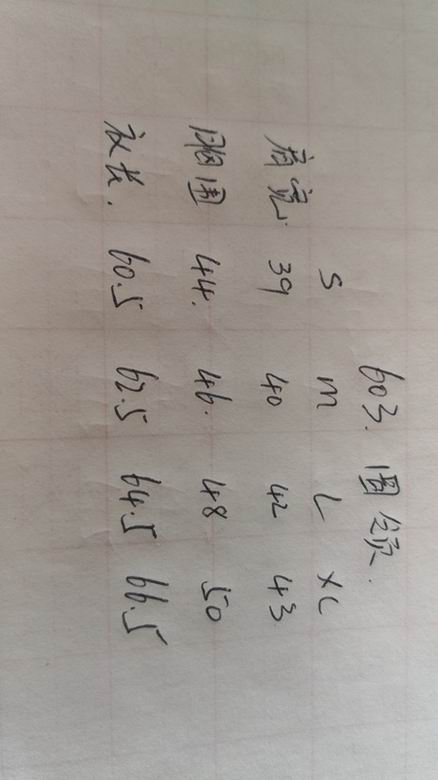 603. 圆领.
S M L XL
肩宽. 39 40 42 43
胸围 44. 46. 48 50
衣长. 60.5 62.5 64.5 66.5